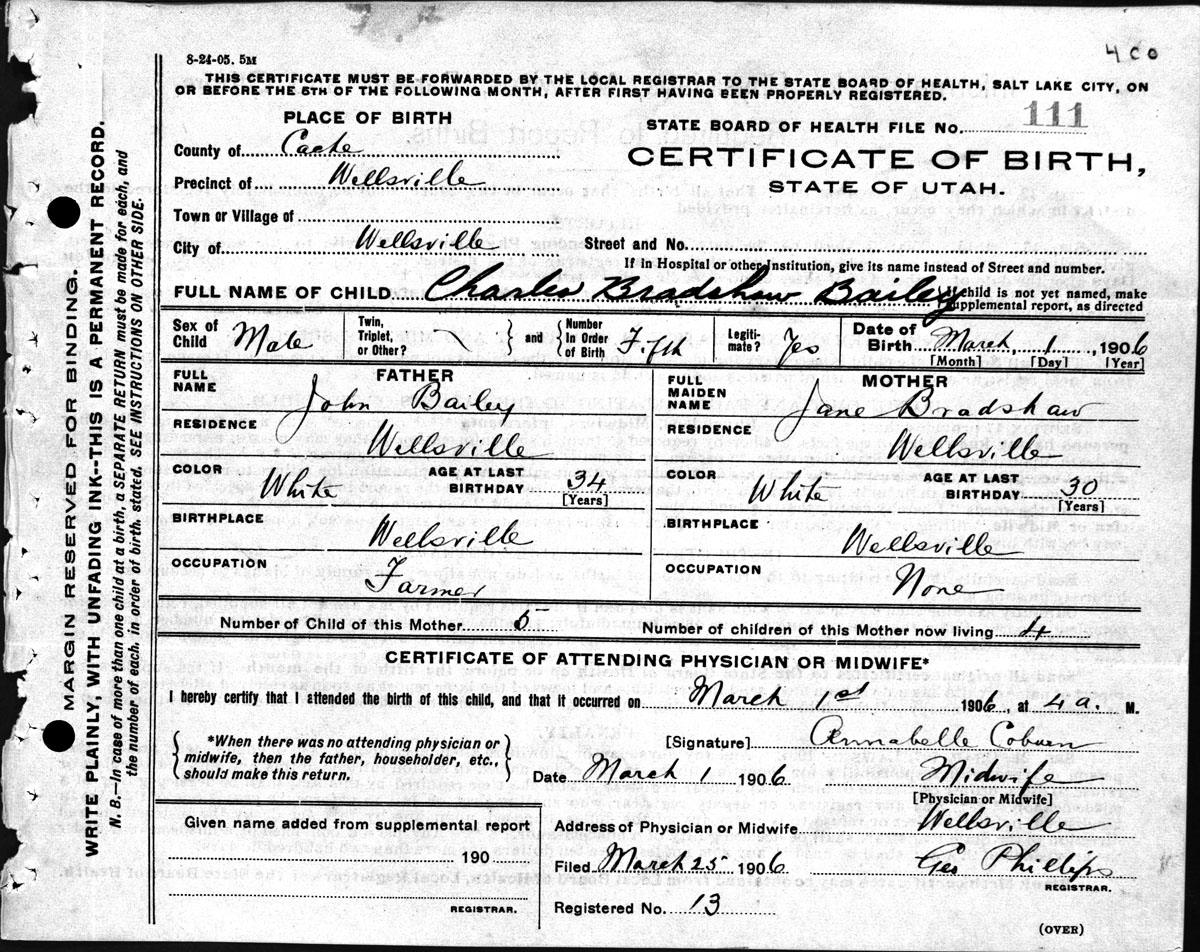 4 C 0
8-24-05. 5M
THIS CERTIFICATE MUST BE FORWARDED BY THE LOCAL REGISTRAR TO THE STATE BOARD OF HEALTH, SALT LAKE CITY, ON
OR BEFORE THE 5TH OF THE FOLLOWING MONTH, AFTER FIRST HAVING BEEN PROPERLY REGISTERED.
PLACE OF BIRTH
STATE BOARD OF HEALTH FILE NO. 111
County of Cache
CERTIFICATE OF BIRTH,
Precinct of Wellsville
STATE OF UTAH.
Town or Village of
City of Wellsville Street and No.
If in Hospital or other Institution, give its name instead of Street and number.
FULL NAME OF CHILD Charles Bradshaw Bailey If child is not yet named, make
supplemental report, as directed
Sex of Child Male Twin, Triplet, or Other? and Number In Order of Birth Fifth Legiti-mate? Yes Date of Birth March, 1, 1906
[Month] [Day] [Year]
FATHER
FULL NAME John Bailey
RESIDENCE Wellsville
COLOR White AGE AT LAST BIRTHDAY 34
[Years]
BIRTHPLACE Wellsville
OCCUPATION Farmer
MOTHER
FULL MAIDEN NAME Jane Bradshaw
RESIDENCE Wellsville
COLOR White AGE AT LAST BIRTHDAY 30
[Years]
BIRTHPLACE Wellsville
OCCUPATION None
Number of Child of this Mother 5 Number of children of this Mother now living 4
CERTIFICATE OF ATTENDING PHYSICIAN OR MIDWIFE*
I hereby certify that I attended the birth of this child, and that it occurred on March 1st 1906, at 4 a. M.
*When there was no attending physician or
midwife, then the father, householder, etc.,
should make this return.
[Signature] Annabelle Coburn
Date March 1 1906 Midwife
[Physician or Midwife]
Given name added from supplemental report
190
REGISTRAR.
Address of Physician or Midwife Wellsville
Filed March 25 1906 Geo Phillips
REGISTRAR.
Registered No. 13
(OVER)
MARGIN RESERVED FOR BINDING.
WRITE PLAINLY, WITH UNFADING INK--THIS IS A PERMANENT RECORD.
N. B.--In case of more than one child at a birth, a SEPARATE RETURN must be made for each, and
the number of each, in order of birth, stated. SEE INSTRUCTIONS ON OTHER SIDE.